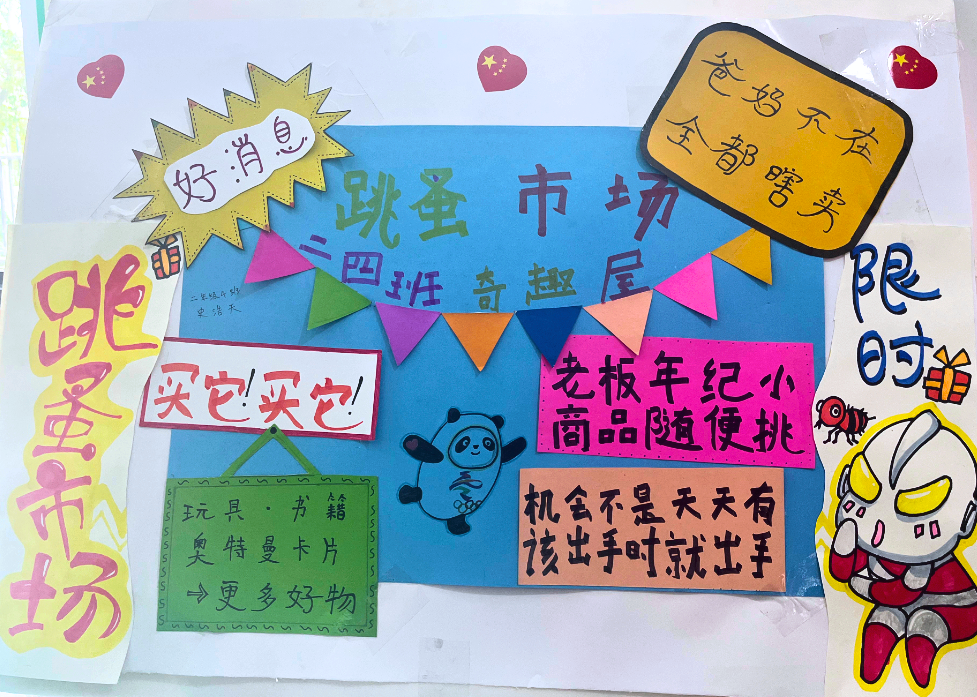 好消息
爸妈不在
全都瞎卖
跳蚤市场
二四班奇趣屋
跳蚤市场
限时
买它!买它!
老板年纪小
商品随便挑
玩具·书籍
奥特曼卡片
→更多好物
机会不是天天有
该出手时就出手